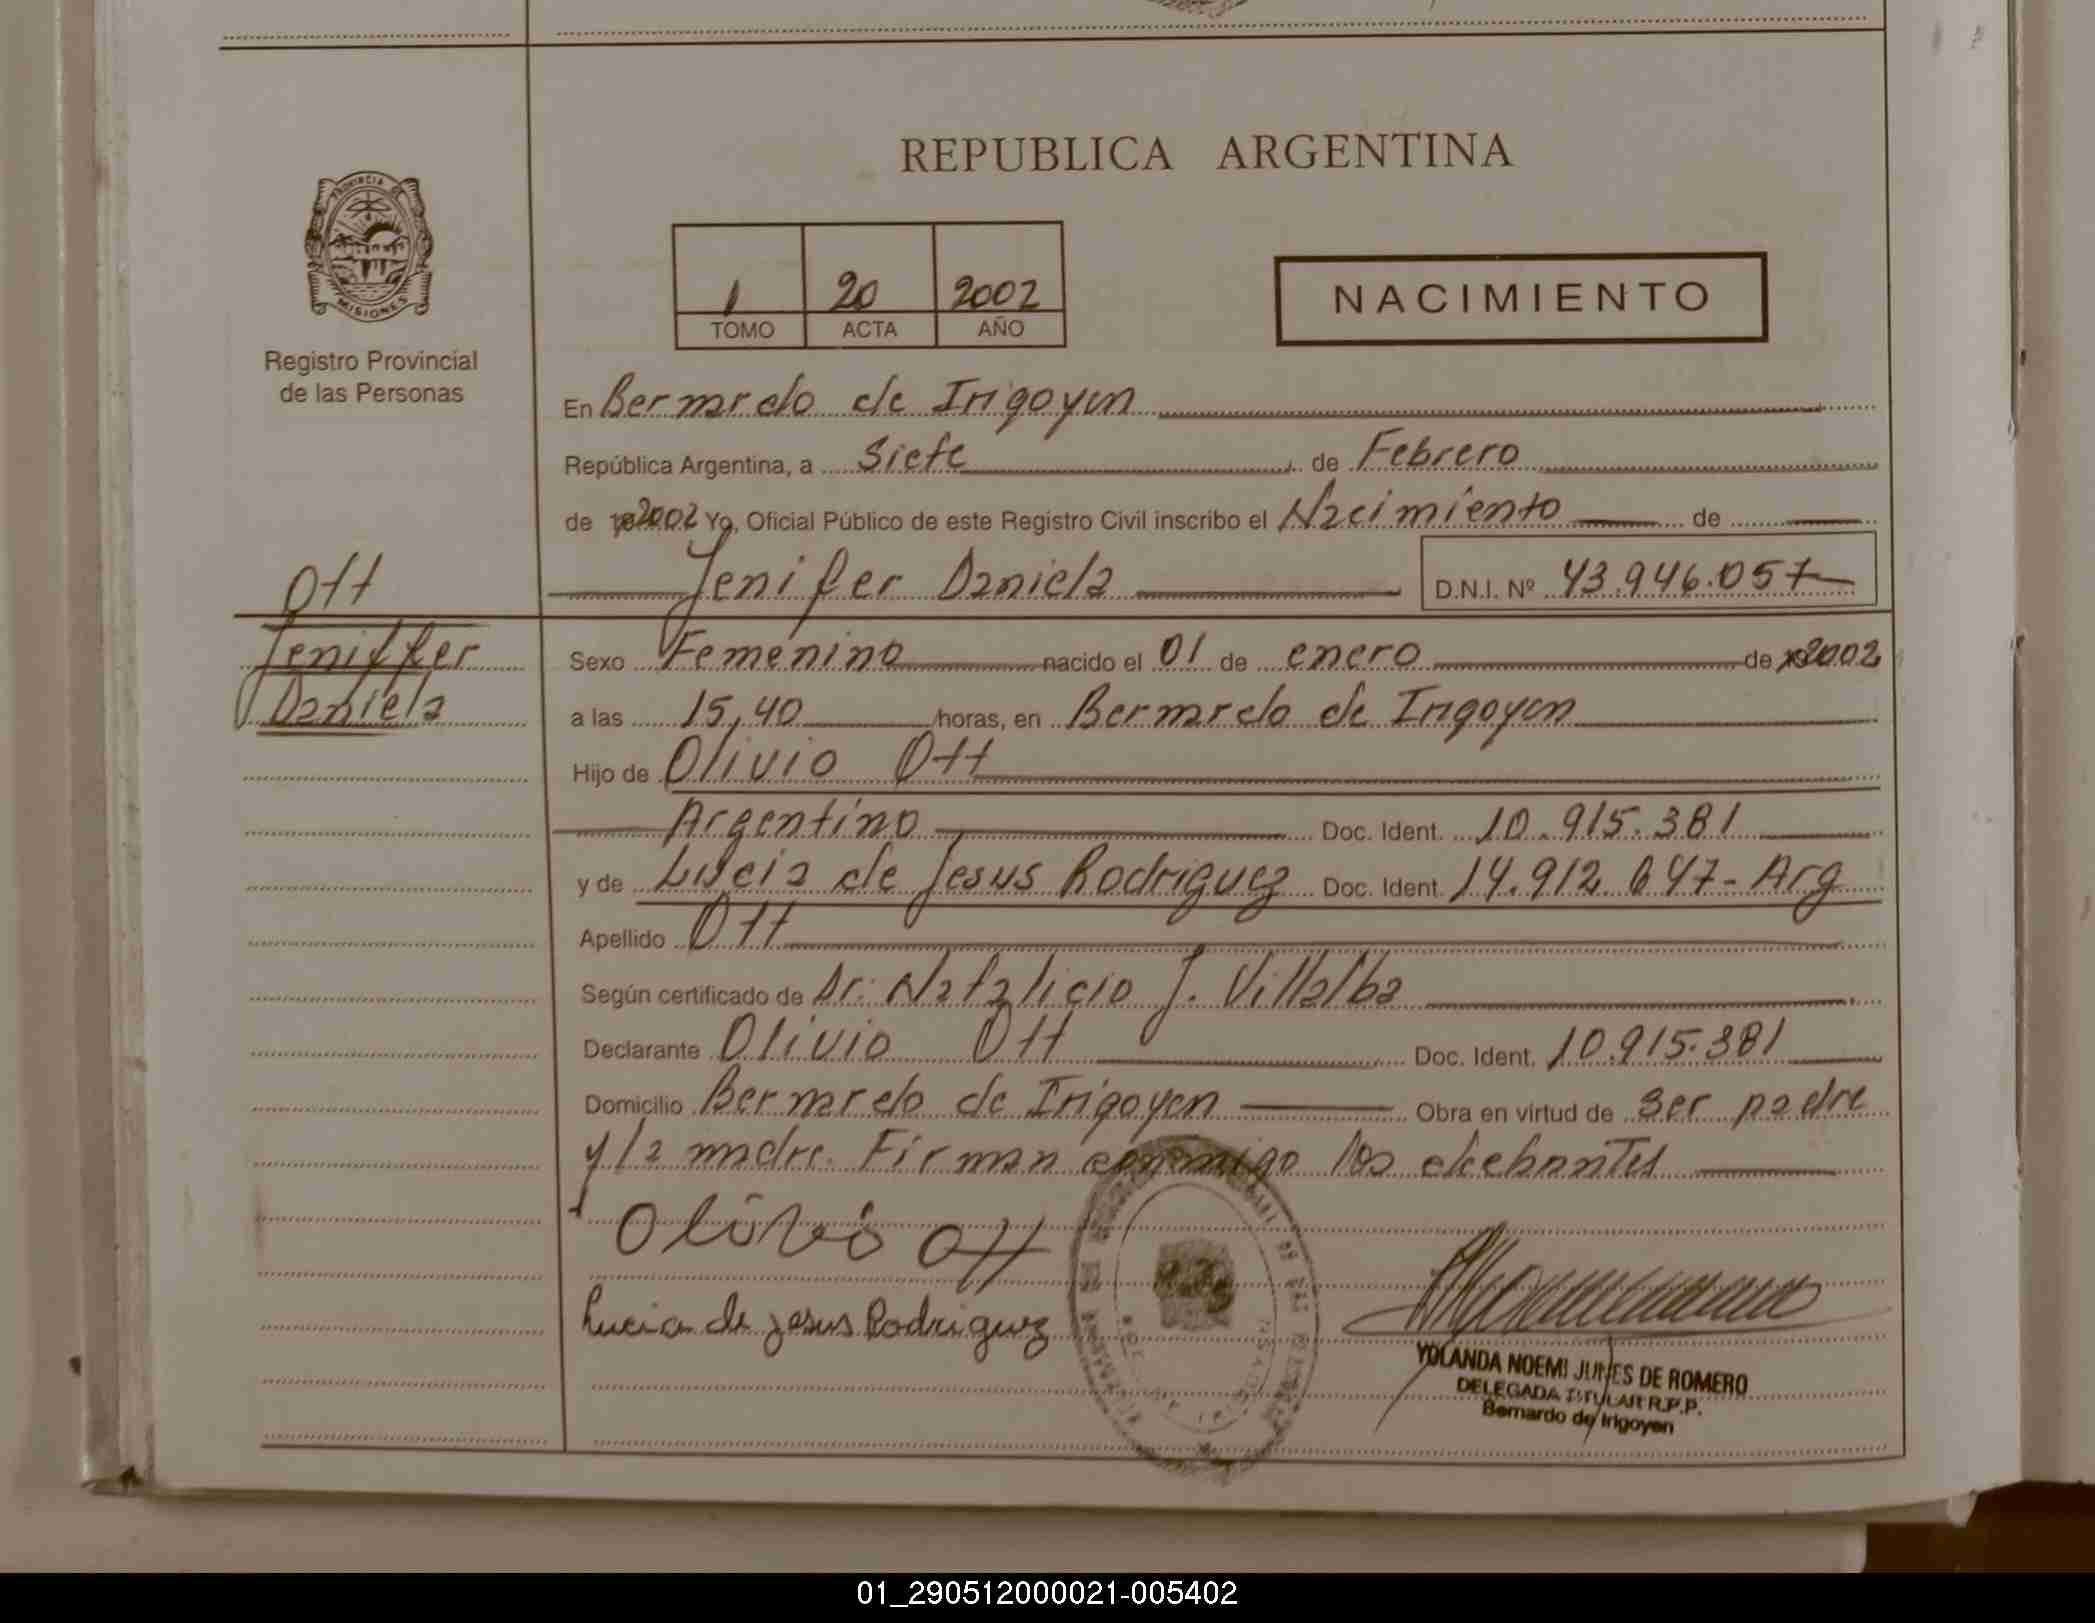 REPUBLICA ARGENTINA
PROVINCIA DE
MISIONES
Registro Provincial
de las Personas
1 20 2002
TOMO ACTA AÑO
NACIMIENTO
En Bernardo de Irigoyen
República Argentina, a Siete de Febrero
de 2002 Yo, Oficial Público de este Registro Civil inscribo el Nacimiento de
Jenifer Daniela D.N.I. Nº 43.946.057
Ott
Jeniffer
Daniela
Sexo Femenino nacido el 01 de enero de 2002
a las 15,40 horas, en Bernardo de Irigoyen
Hijo de Olivio Ott
Argentino Doc. Ident. 10.915.381
y de Lucia de Jesus Rodriguez Doc. Ident. 14.912.647-Arg
Apellido Ott
Según certificado de Dr. Natalicio J. Villalba
Declarante Olivio Ott Doc. Ident. 10.915.381
Domicilio Bernardo de Irigoyen Obra en virtud de ser padre
y la madre. Firman conmigo los
Olivio Ott
Lucia de jesus Rodriguez
YOLANDA NOEMI JUNES DE ROMERO
DELEGADA TITULAR R.P.P.
Bernardo de Irigoyen
01_290512000021-005402